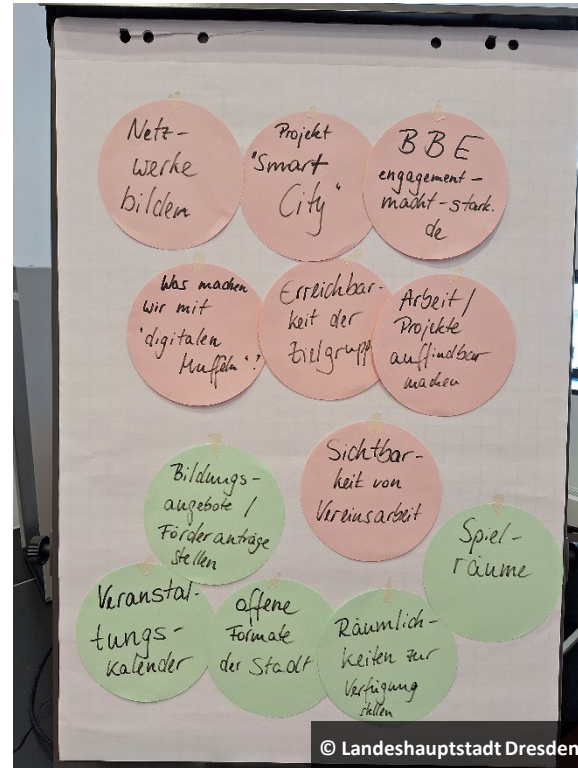 Netz-
werke
bilden
Projekt
"Smart
City"
BBE
engagement-
macht-stark.
de
Was machen
wir mit
"digitalen
Muffeln"?
Erreichbar-
keit der
Zielgruppe
Arbeit /
Projekte
auffindbar
machen
Sichtbar-
keit von
Vereinsarbeit
Bildungs-
angebote /
Förderanträge
stellen
Spiel-
räume
Veranstal-
tungs-
kalender
offene
Formate
der Stadt
Räumlich-
keiten zur
Verfügung
stellen
© Landeshauptstadt Dresden